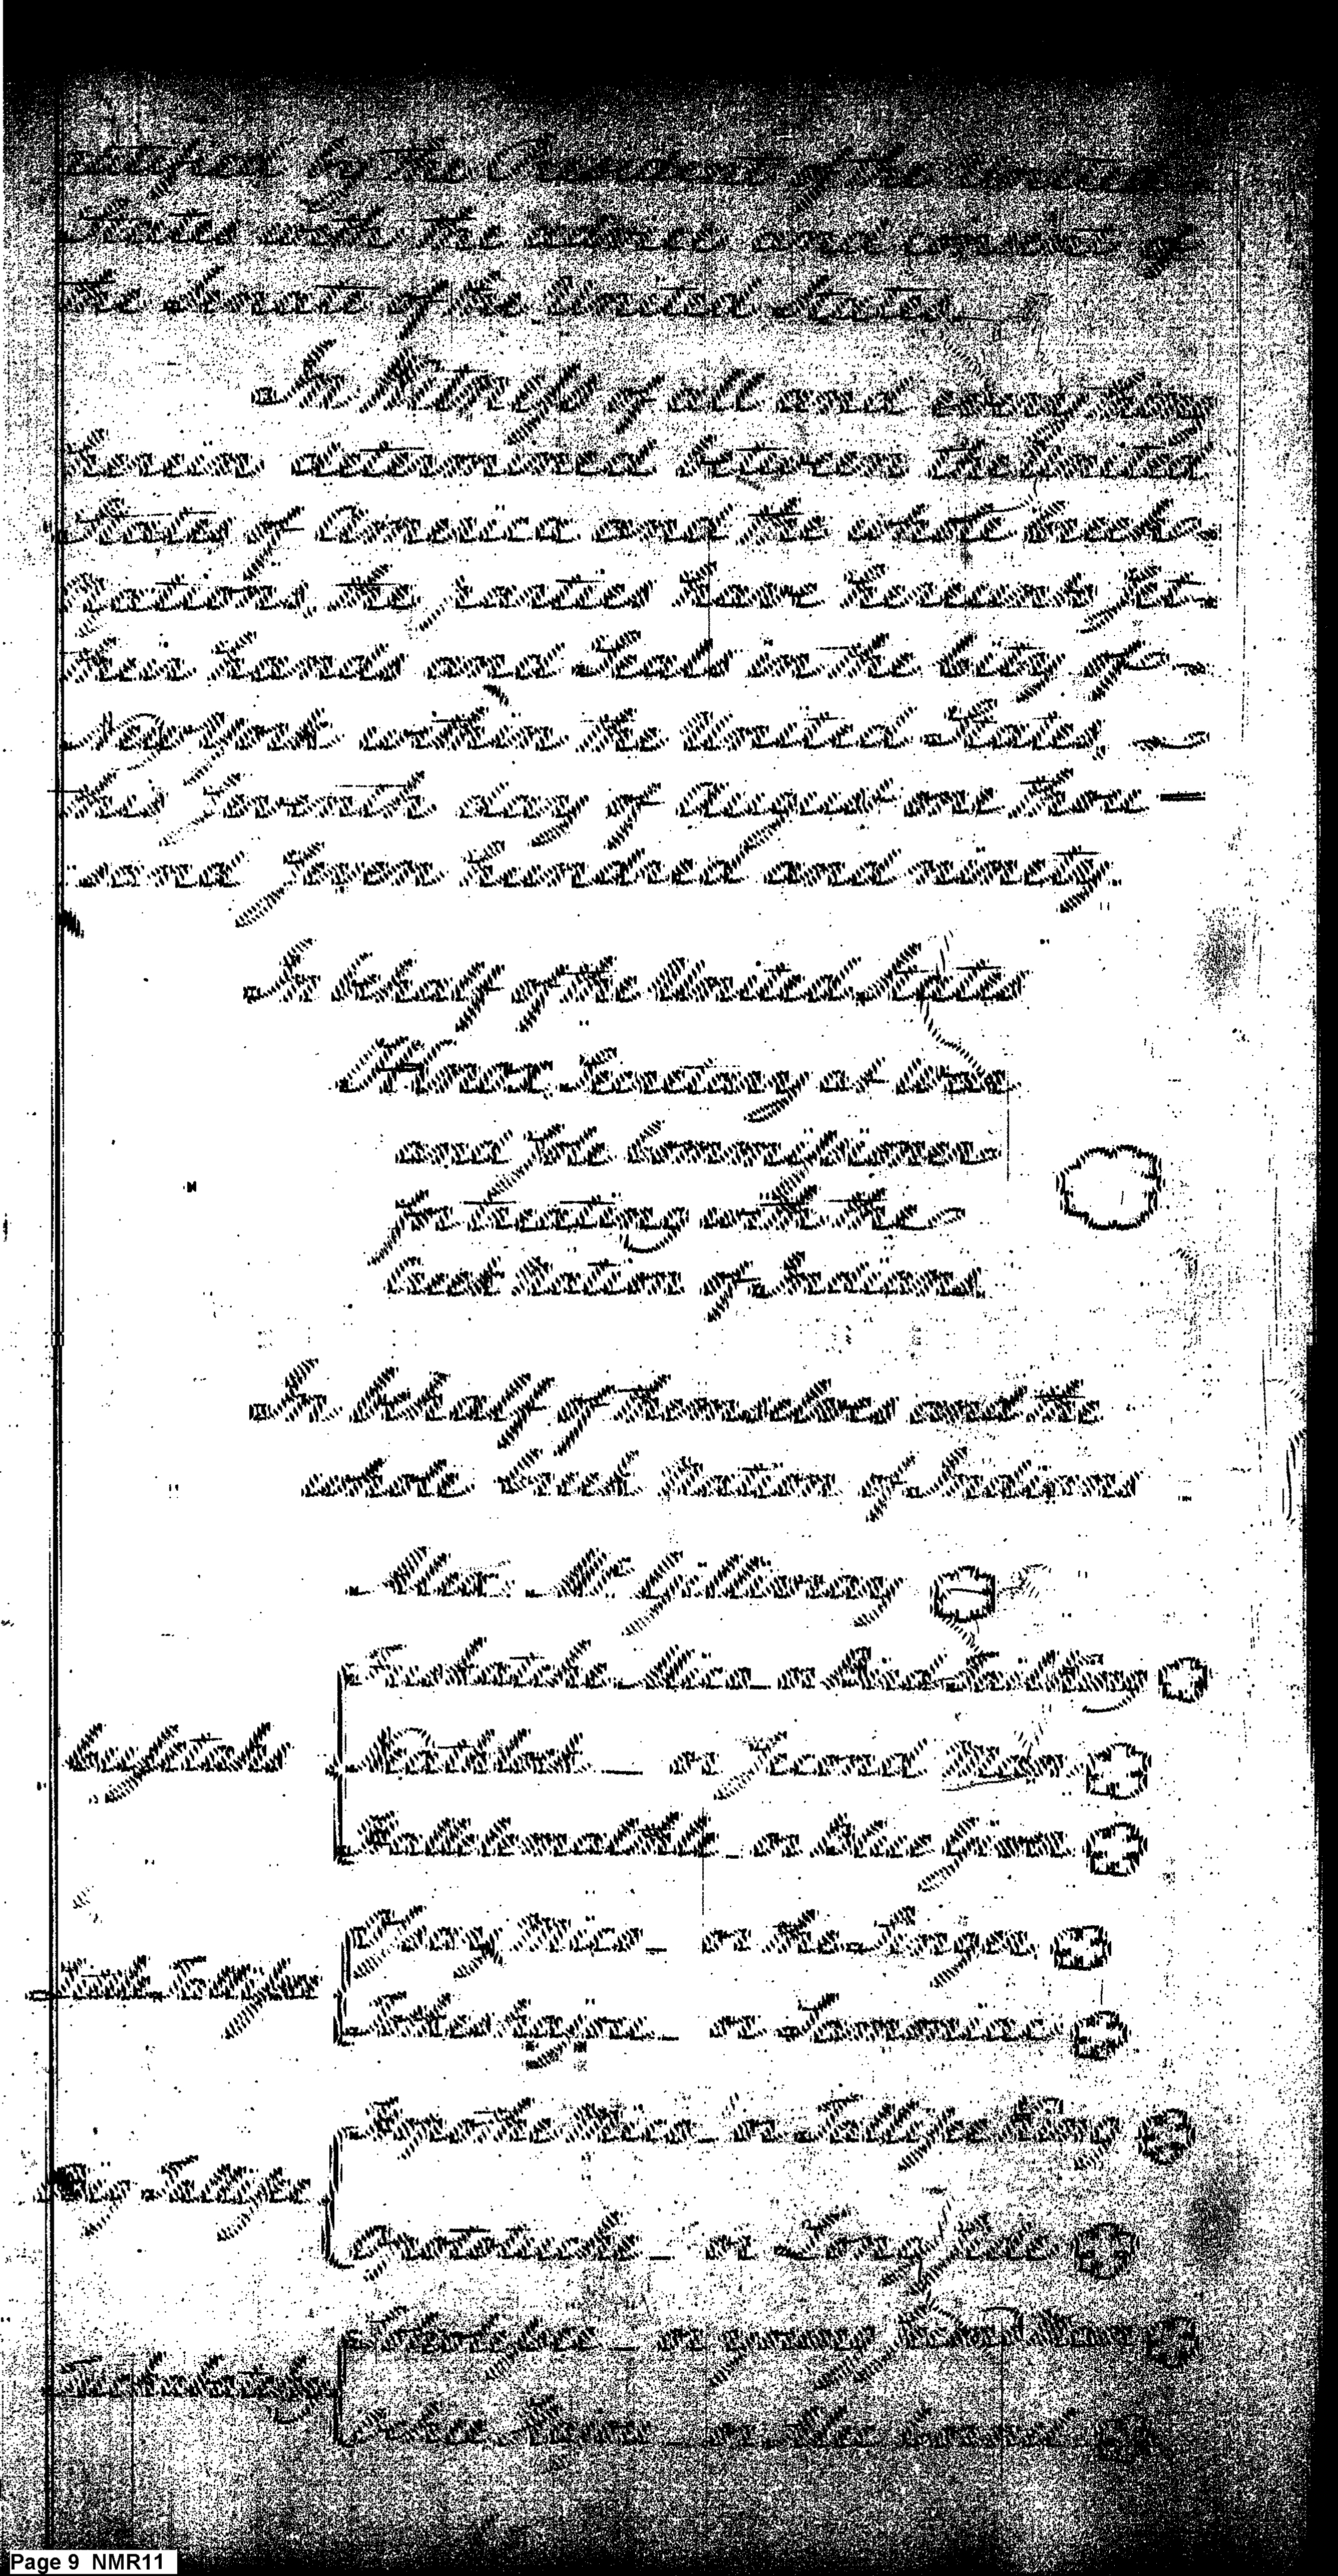 ratified by the President of the United
States with the advice and consent of
the Senate of the United States.
In Witness of all and every thing
herein determined between the United
States of America and the whole Creek
Nation, the parties have hereunto set
their hands and Seals in the City of
New York within the United States,
this Seventh day of August one thou
sand seven hundred and ninety.
In behalf of the United States
HKnox Secretary at War
and Sole Commissioner
for treating with the
Creek Nation of Indians.
In behalf of themselves and the
whole Creek Nation of Indians
Alex: McGillivray
Fuskatche Mico or Bird Tail King
Cusetahs
Neathlock or Second Man
Halletemalthle or Blue Giver
Opay Mico or the Singer
Little Tallisee
Totkeshajou or Samoniac
Hopothe Mico or Tallisee King
Big Tallisee
Opototache or Long Side
Soholessee or young Second Man
Tuckabatchy
Ocheehajou or Aleck Cornel
Page 9 NMR11